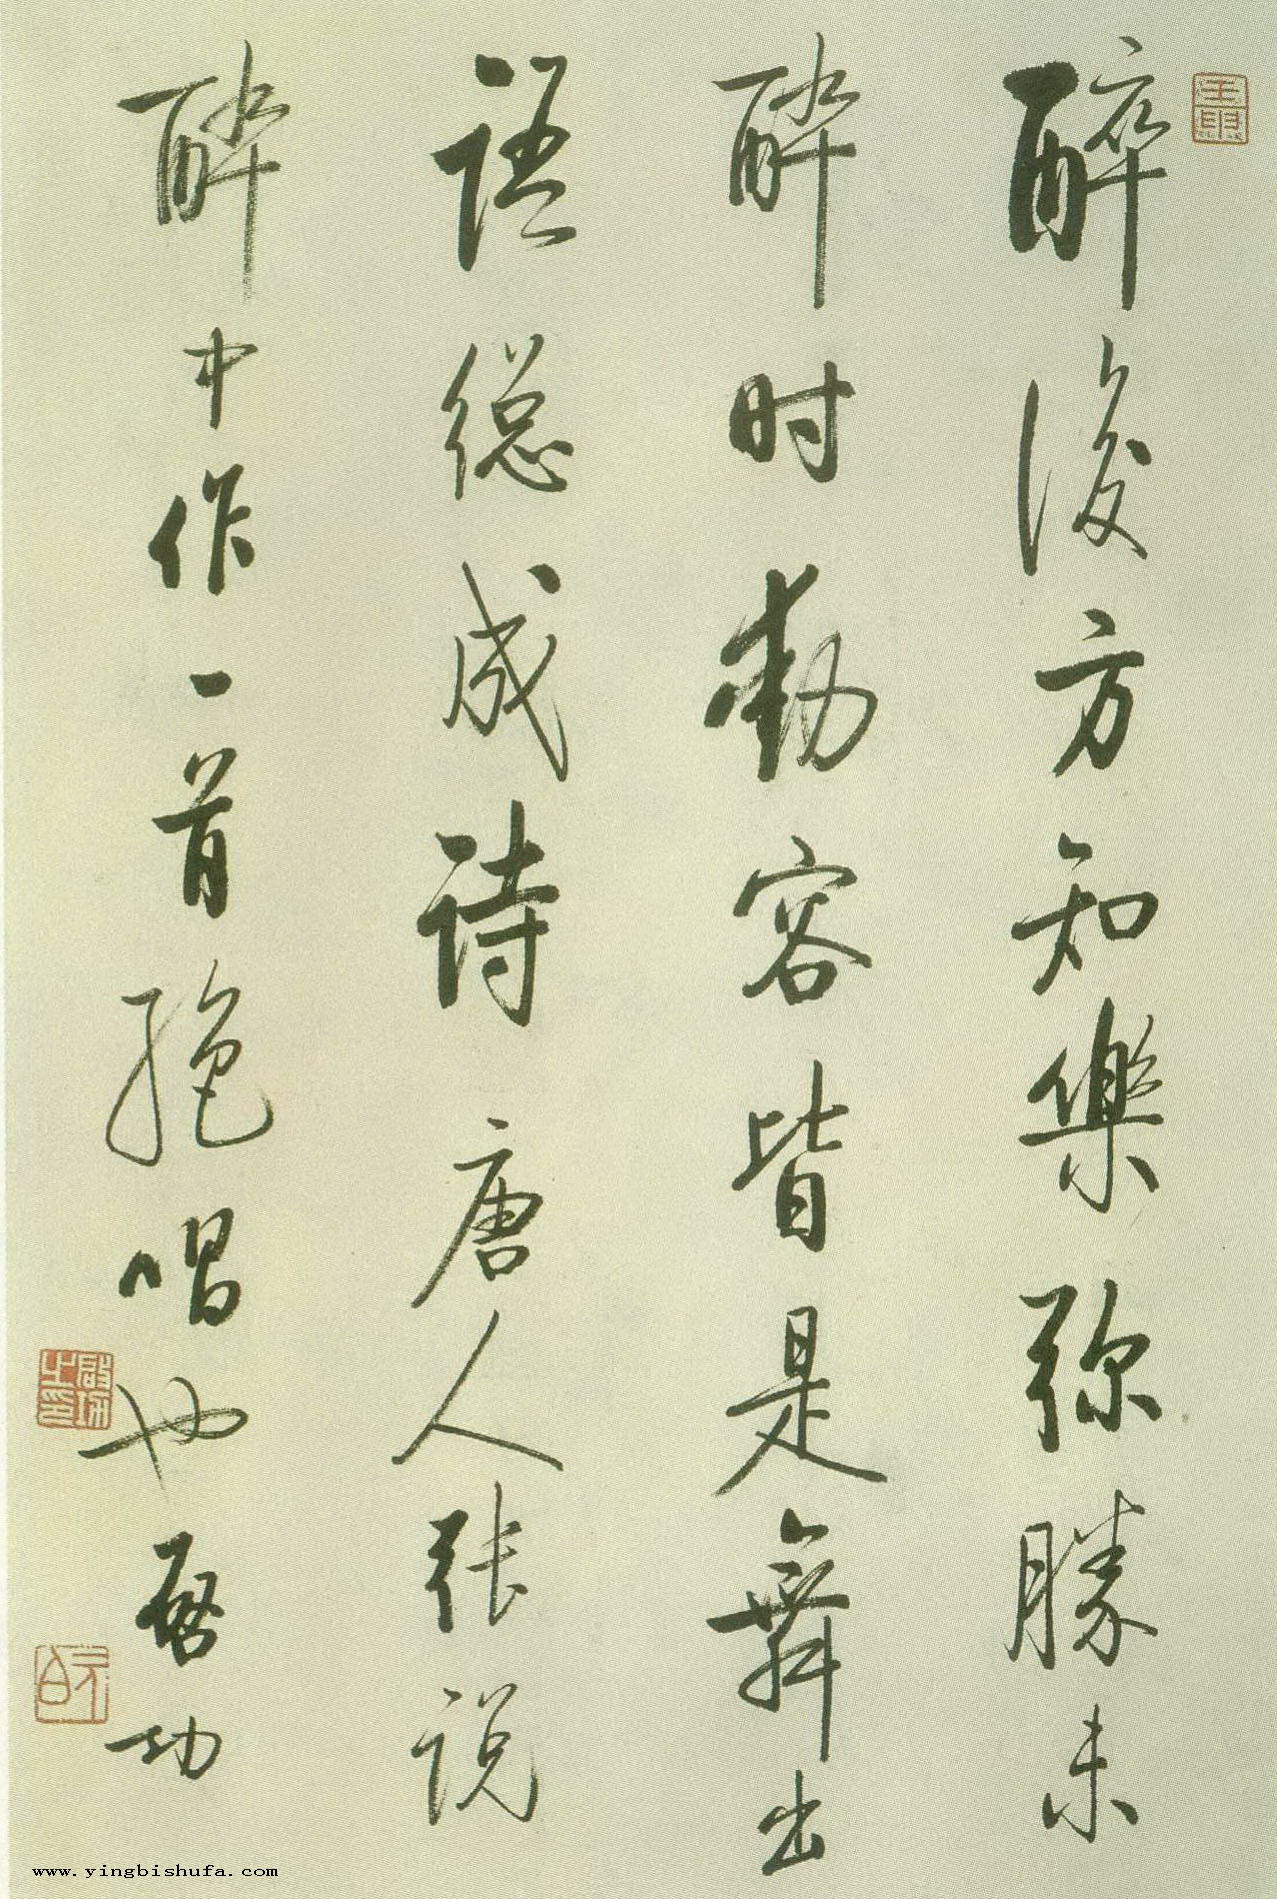 醉後方知樂弥勝未
醉时動容皆是舞出
语総成诗唐人张说
醉中作一首绝唱也启功
启功之印
www.yingbishufa.com